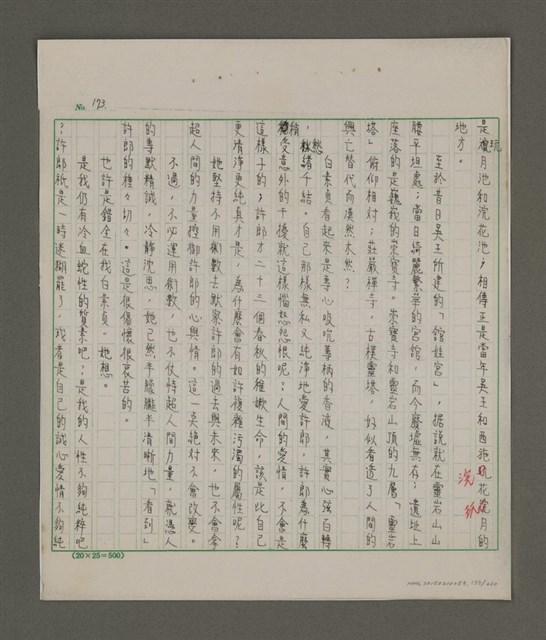 No. 173
是浣月池和浣花池，相傳正是當年吳王和西施玩花玩月的
地方。
至於昔日吳王所建的「館娃宮」，據說就在靈岩山山
腰平坦處；當日綺麗繁華的宮館，而今廢墟無存；遺址上
座落的是巍峩的崇寶寺。崇寶寺和靈岩山頂的九層「靈岩
塔」俯仰相對；莊嚴禪寺，古樸靈塔，好似看透了人間的
興亡替代而漠然木然？
白素貞看起來是專心吸吮草柄的香液，其實心弦自轉
，愁緒千結。自己那樣無私又純淨地愛許郎，許郎為什麼
稍受意外的干擾就這樣惱怒怨恨呢？人間的愛情，不會是
這樣子的；許郎才二十三個春秋的稚嫩生命，該是比自己
更清淨更純真才是，為什麼會有如許複雜污濁的屬性呢？
她堅持不用術數去默察許郎的過去與未來，也不會拿
超人間的力量控御許郎的心與情。這一點絕對不會改變。
不過，不必運用術數，也不仗恃超人間力量，就憑人
的專默精誠，冷靜沈思，她已然半朦朧半清晰地「看到」
許郎的種々切々。這是很傷懷很哀苦的。
也許是錯全在我白素貞。她想。
是我仍有冷血蛇性的質素吧？是我的人性不夠純粹吧
？許郎祇是一時迷糊罷了，或者是自己的誠心愛情不夠純
浣
紙
(20×25=500)